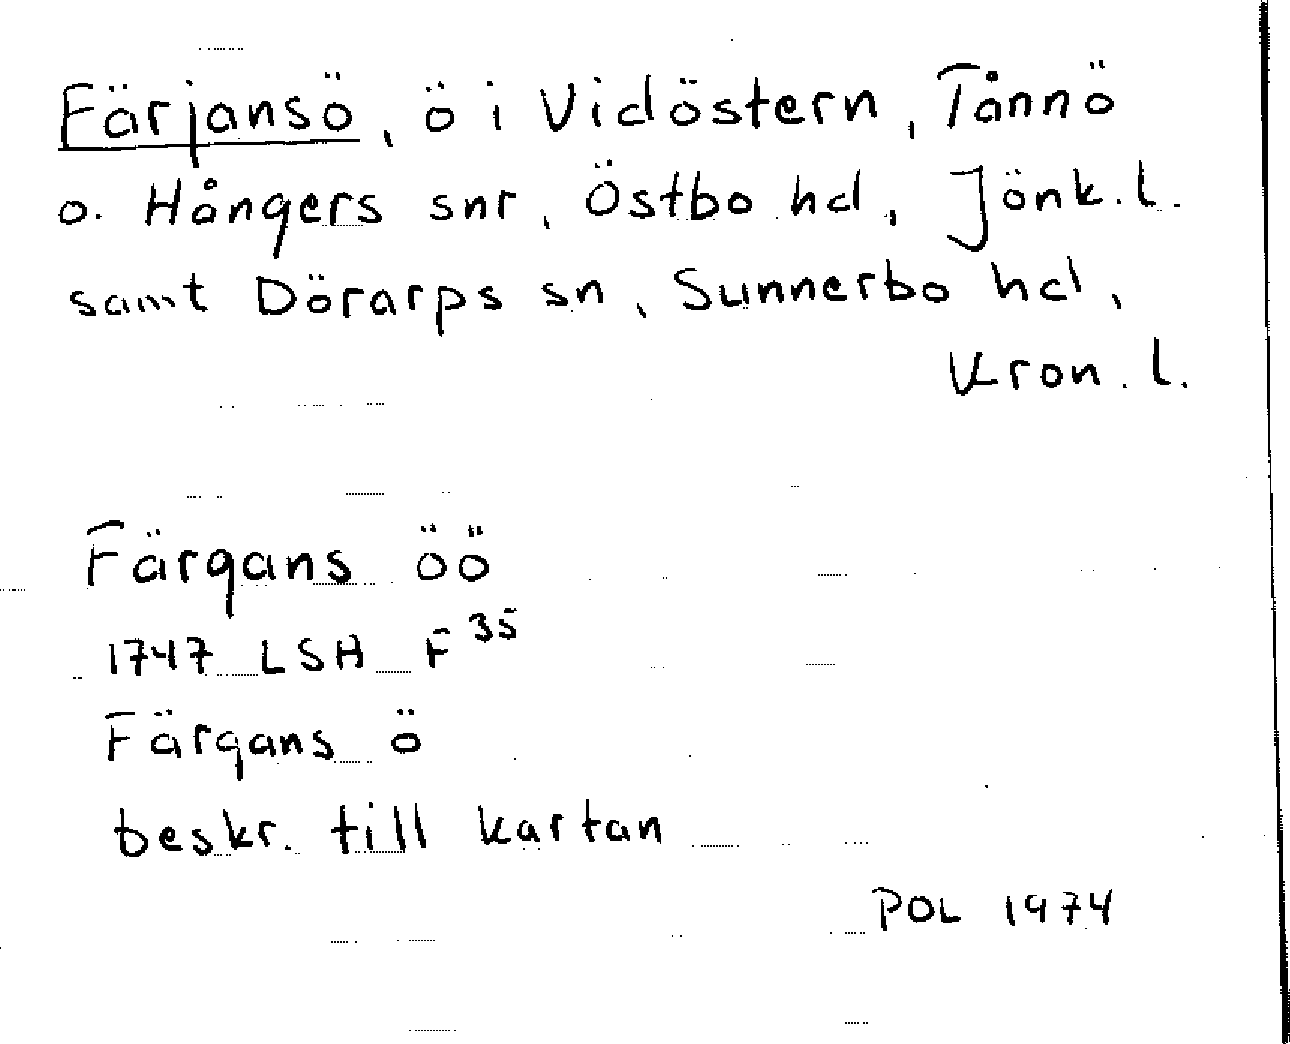 Färjansö, ö i Vidöstern, Tånnö
o. Hångers snr, Östbo hd, Jönk.l.
samt Dörarps sn, Sunnerbo hd,
Kron.l.
Färgans öö
1747 LSH F35
Färgans ö
beskr. till kartan
POL 1974